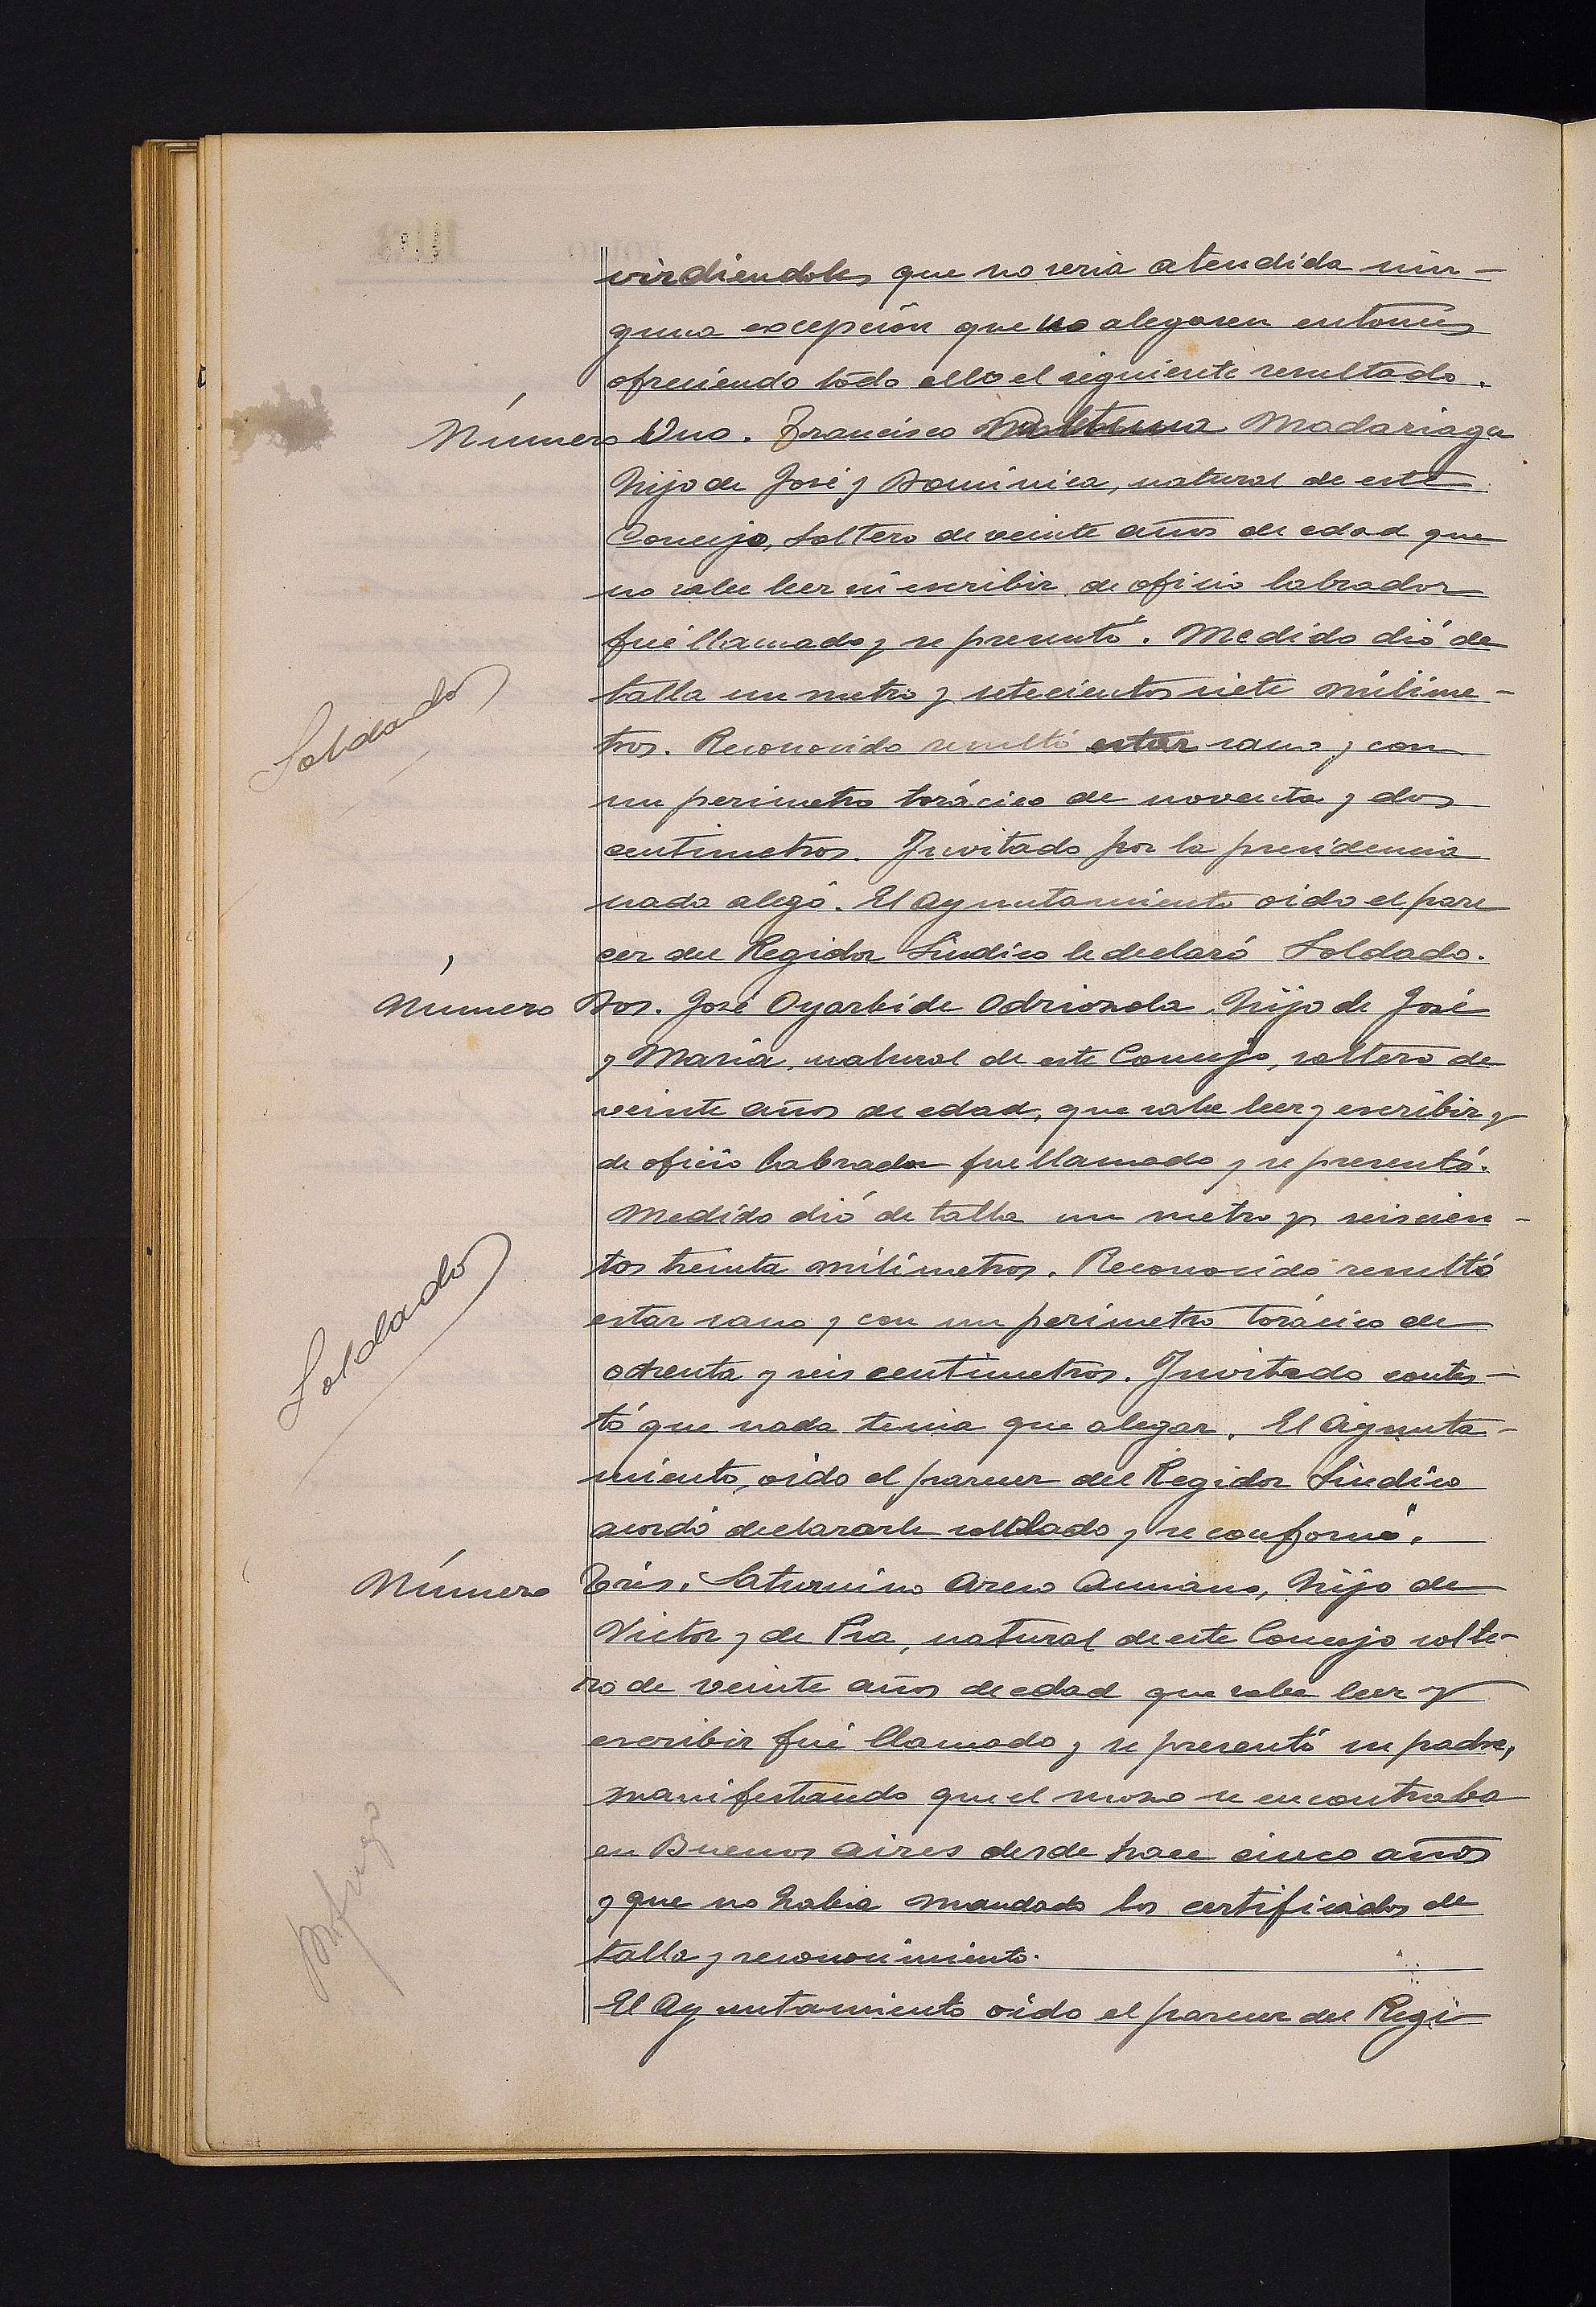 virdiendoles que no seria atendida nin-
guna excepción que no alegasen entonces
ofreciendo todo ello el siguiente resultado.
Número Uno. Francisco Madariaga
hijo de José y Dominica, natural de este
Concejo, soltero de veinte años de edad que
no sabe leer ni escribir de oficio labrador
fué llamado y se presentó. Medido dió de
talla un metro y setecientos siete milime-
Soldado
tros. Reconocido resultó estar sano y con
un perimetro torácico de noventa y dos
centimetros. Invitado por la presidencia
nada alegó. El Ayuntamiento oido el pare
cer del Regidor Sindico le declaró Soldado.
Número Dos. José Oyarbide Odriozola, hijo de José
y Maria, natural de este Concejo, soltero de
veinte años de edad, que sabe leer y escribir y
de oficio labrador fue llamado y se presentó.
Medido dió de talla un metro y seiscien-
tos treinta milimetros. Reconocido resultó
Soldado
estar sano y con un perimetro torácico de
ochenta y seis centimetros. Invitado contes-
tó que nada tenia que alegar. El Ayunta-
miento, oido el parecer del Regidor Sindico
acordó declararle soldado y se conformó.
Número Tres. Saturnino hijo de
Victor y de Pia, natural de este Concejo solte-
ro de veinte años de edad que sabe leer y
escribir fué llamado y se presentó su padre,
manifestando que el mozo se encontraba
en Buenos Aires desde hace cinco años
y que no habia mandado los certificados de
Prófugo
talla y reconocimiento.
El Ayuntamiento oido el parecer del Regi-